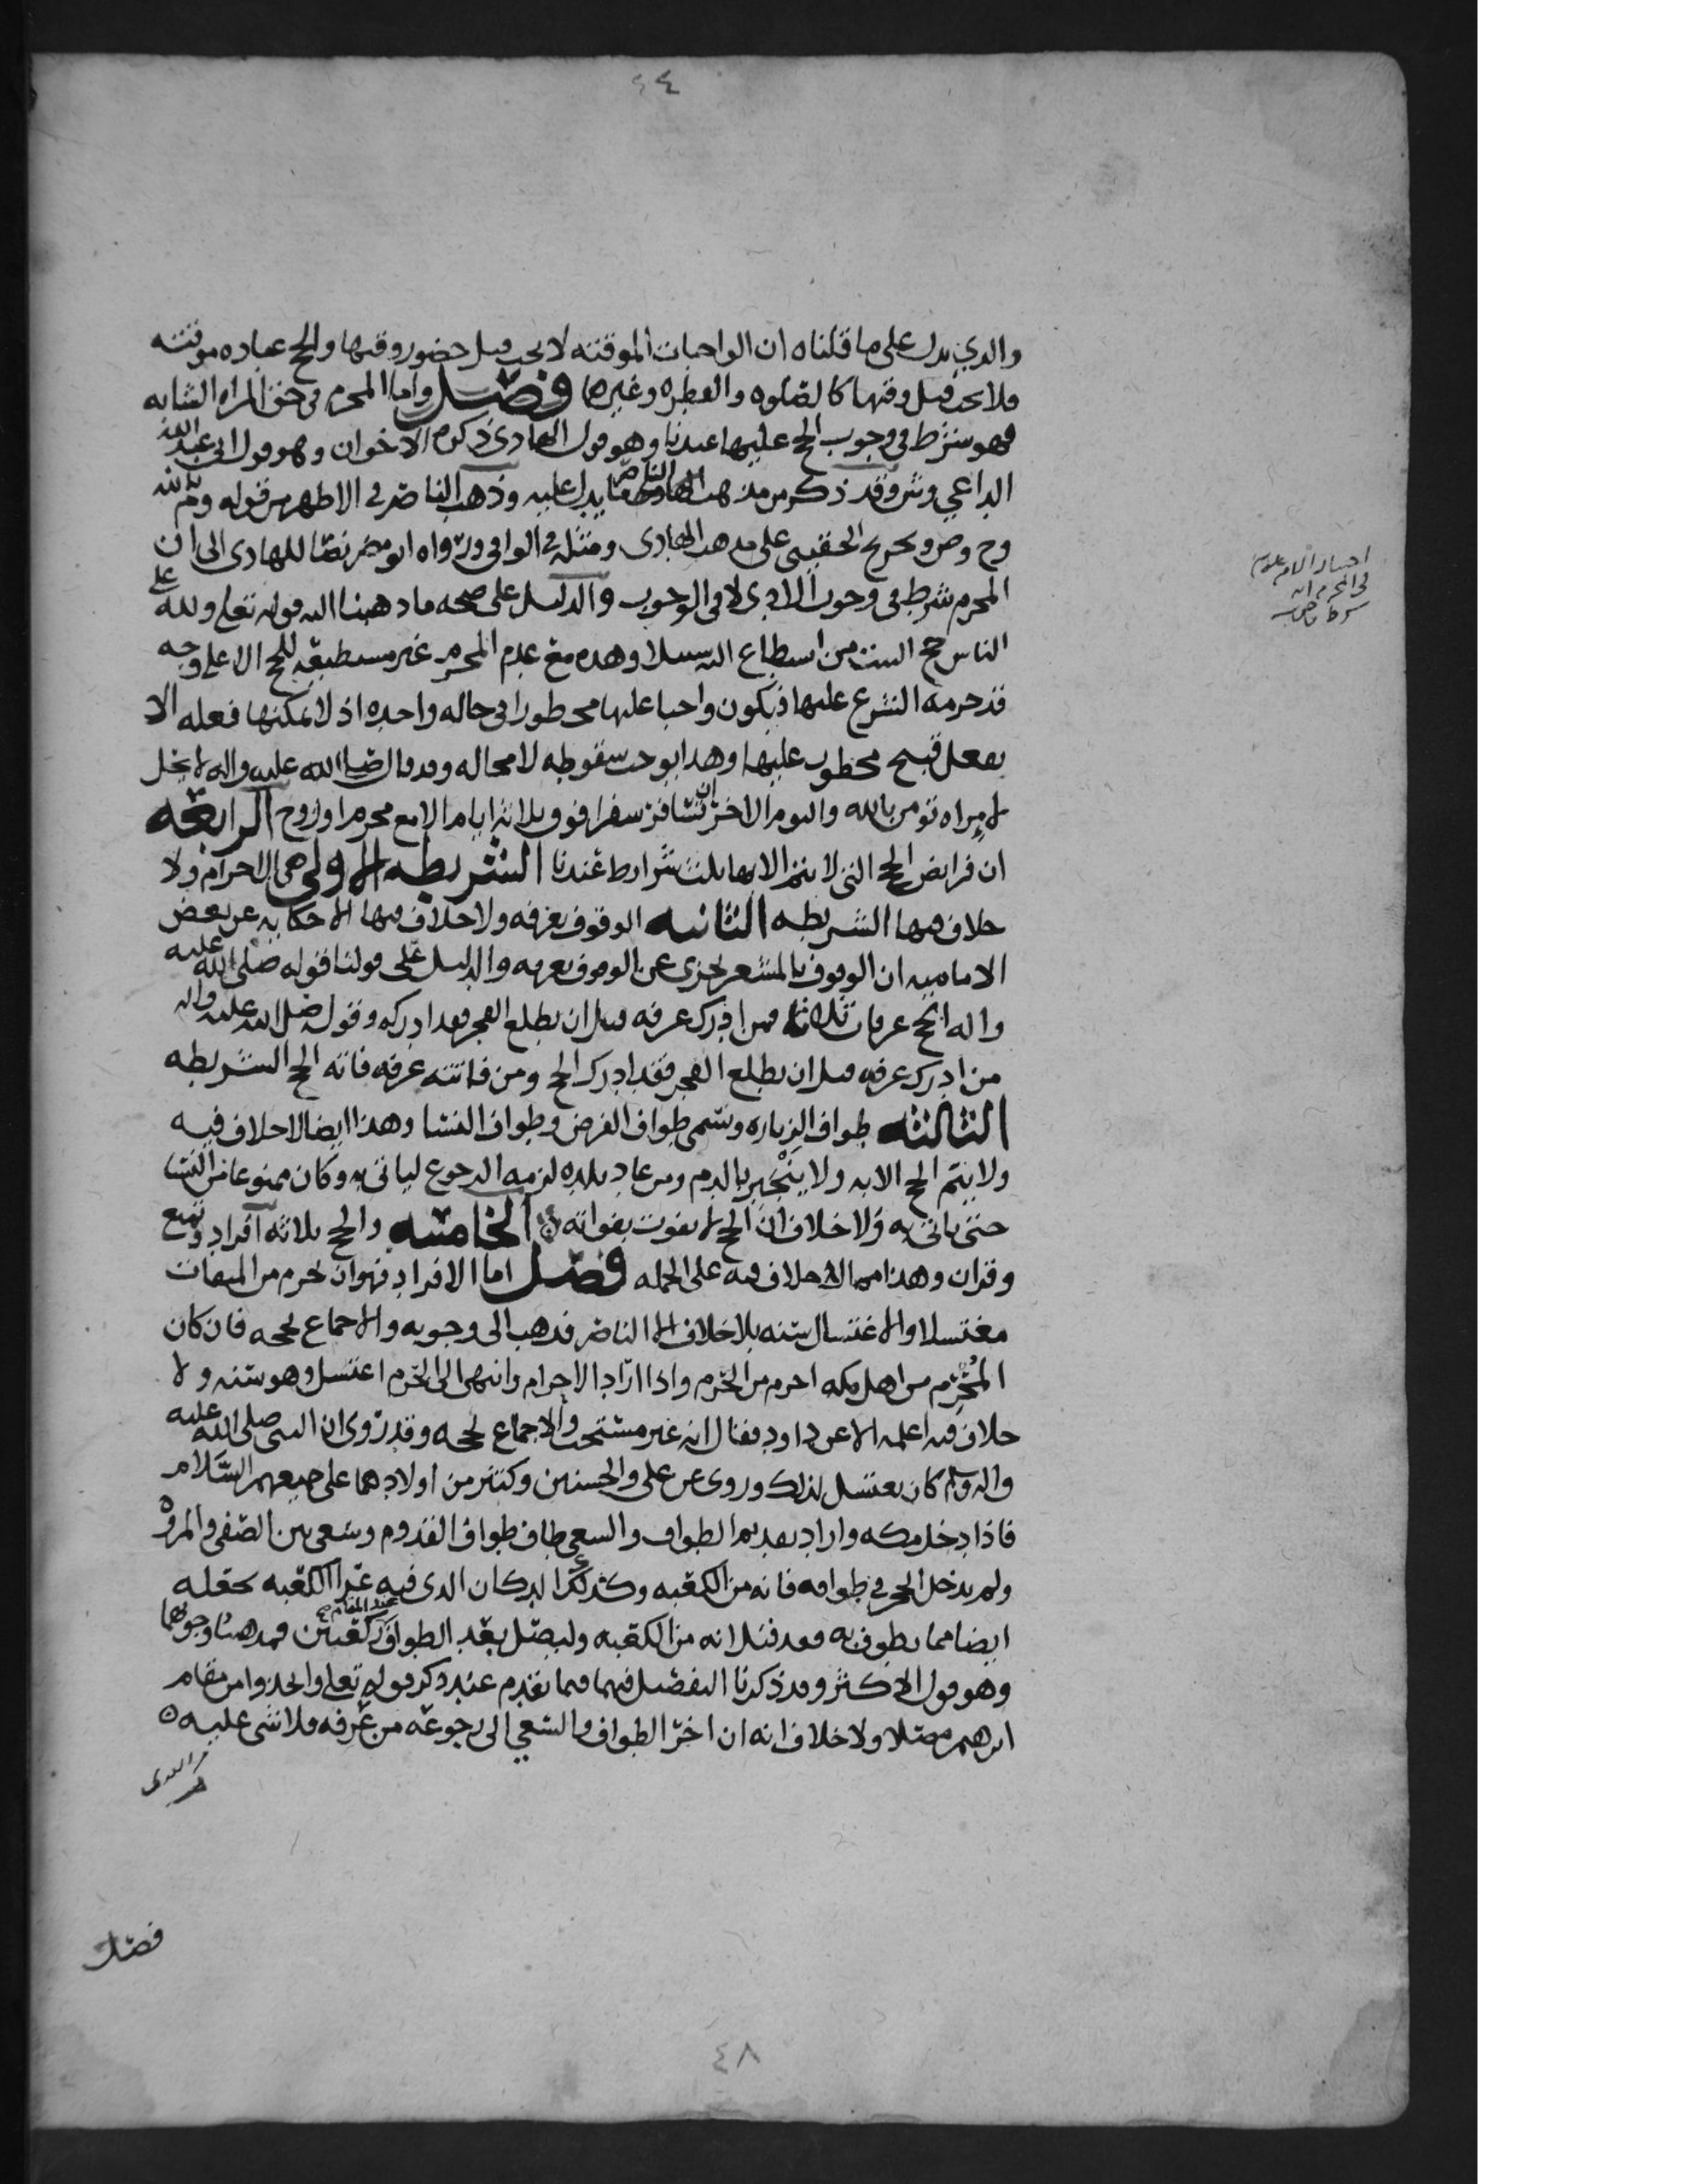 ٤٤
والذي يدل على ما قلناه ان الواجبات الموقته لا يجب قبل حضور وقتها والحج عباده موقته
فلا يجب قبل وقتها كالصلوه والفطره وغيرها فصل واما المحرم في حق المراه الشابه
فهو شرط في وجوب الحج عليها عندنا وهو قول الهادي ذكره الاخوان وهو قول ابي عبد الله
الداعي وش وقد ذكر من مذهب ما يدل عليه وذهب الناصر في الاظهر من قوله وم بالله
وح وص وتخريج الحقيني على مذهب الهادي ومثله في الوافي ورواه ابو مضر نصا للهادي الى ان
المحرم شرط في وجوب الادى لا في الوجوب والدليل على صحه ما ذهبنا اليه قوله تعلى ولله على
الناس حج البيت من استطاع اليه سبيلا وهذه مع عدم المحرم غير مستطيعه للحج الا على وجه
قد حرمه الشرع عليها فيكون واجبا عليها محظورا في حاله واحده اذ لا يمكنها فعله الا
بفعل قبيح محظور عليها وهذا يوجب سقوطه لا محاله وقد قال صلى الله عليه واله لا يحل
لامراه تومن بالله واليوم الاخر ان تسافر سفرا فوق ثلاثه ايام الا مع محرم او زوج الرابعه
ان فرايض الحج التي لا يتم الا بها ثلث شرايط عندنا الشريطه الاولى هي الاحرام ولا
خلاف فيها الشريطه الثانيه الوقوف بعرفه ولا خلاف فيها الا حكايه عن بعض
الاماميه ان الوقوف بالمشعر يجزي عن الوقوف بعرفه والدليل على قولنا قوله صلى الله عليه
واله الحج عرفات ثلاثا فمن ادرك عرفه قبل ان يطلع الفجر فقد ادركه وقوله صلى الله عليه واله
من ادرك عرفه قبل ان يطلع الفجر فقد ادرك الحج ومن فاتته عرفه فاته الحج الشريطه
الثالثه طواف الزياره وتسمى طواف الفرض وطواف النسا وهذا ايضا لا خلاف فيه
ولا يتم الحج الا به ولا ينجبر بالدم ومن عاد بلده لزمه الرجوع لياتي به وكان ممنوعا من النسا
حتى ياتي به ولا خلاف ان الحج لا يفوت بفواته الخامسه والحج ثلاثه افراد وتمتع
وقران وهذا مما لا خلاف فيه على الجمله فصل اما الافراد فهو ان يحرم من الميقات
مغتسلا والاغتسال سنه بلا خلاف الا الناصر فذهب الى وجوبه والاجماع يحجه فان كان
المحرم من اهل مكه احرم من الحرم واذا اراد الاحرام وانتهى الى الحرم اغتسل وهو سنه ولا
خلاف فيه اعلمه الا عن داود فقال انه غير مستحب والاجماع يحجه وقد روى ان النبي صلى الله عليه
واله وسلم كان يغتسل لذلك وروى عن علي والحسنين وكثير من اولادهما على جميعهم السلام
فاذا دخل مكه واراد تقديم الطواف والسعي طاف طواف القدوم وسعى بين الصفى والمروه
ولم يدخل الحجر في طوافه فانه من الكعبه وكذلك الدكان الذي فيه عرا الكعبه يجعله
ايضا مما يطوف به فقد قيل انه من الكعبه وليصل بعد الطواف ركعتين عند المقام فمذهبنا وجوبهما
وهو قول الاكثر وقد ذكرنا التفصيل فيهما فيما تقدم عند ذكر قوله تعلى واتخذوا من مقام
ابرهيم مصلا ولا خلاف انه ان اخر الطواف والسعي الى رجوعه من عرفه فلا شى عليه
فصل
٤٨